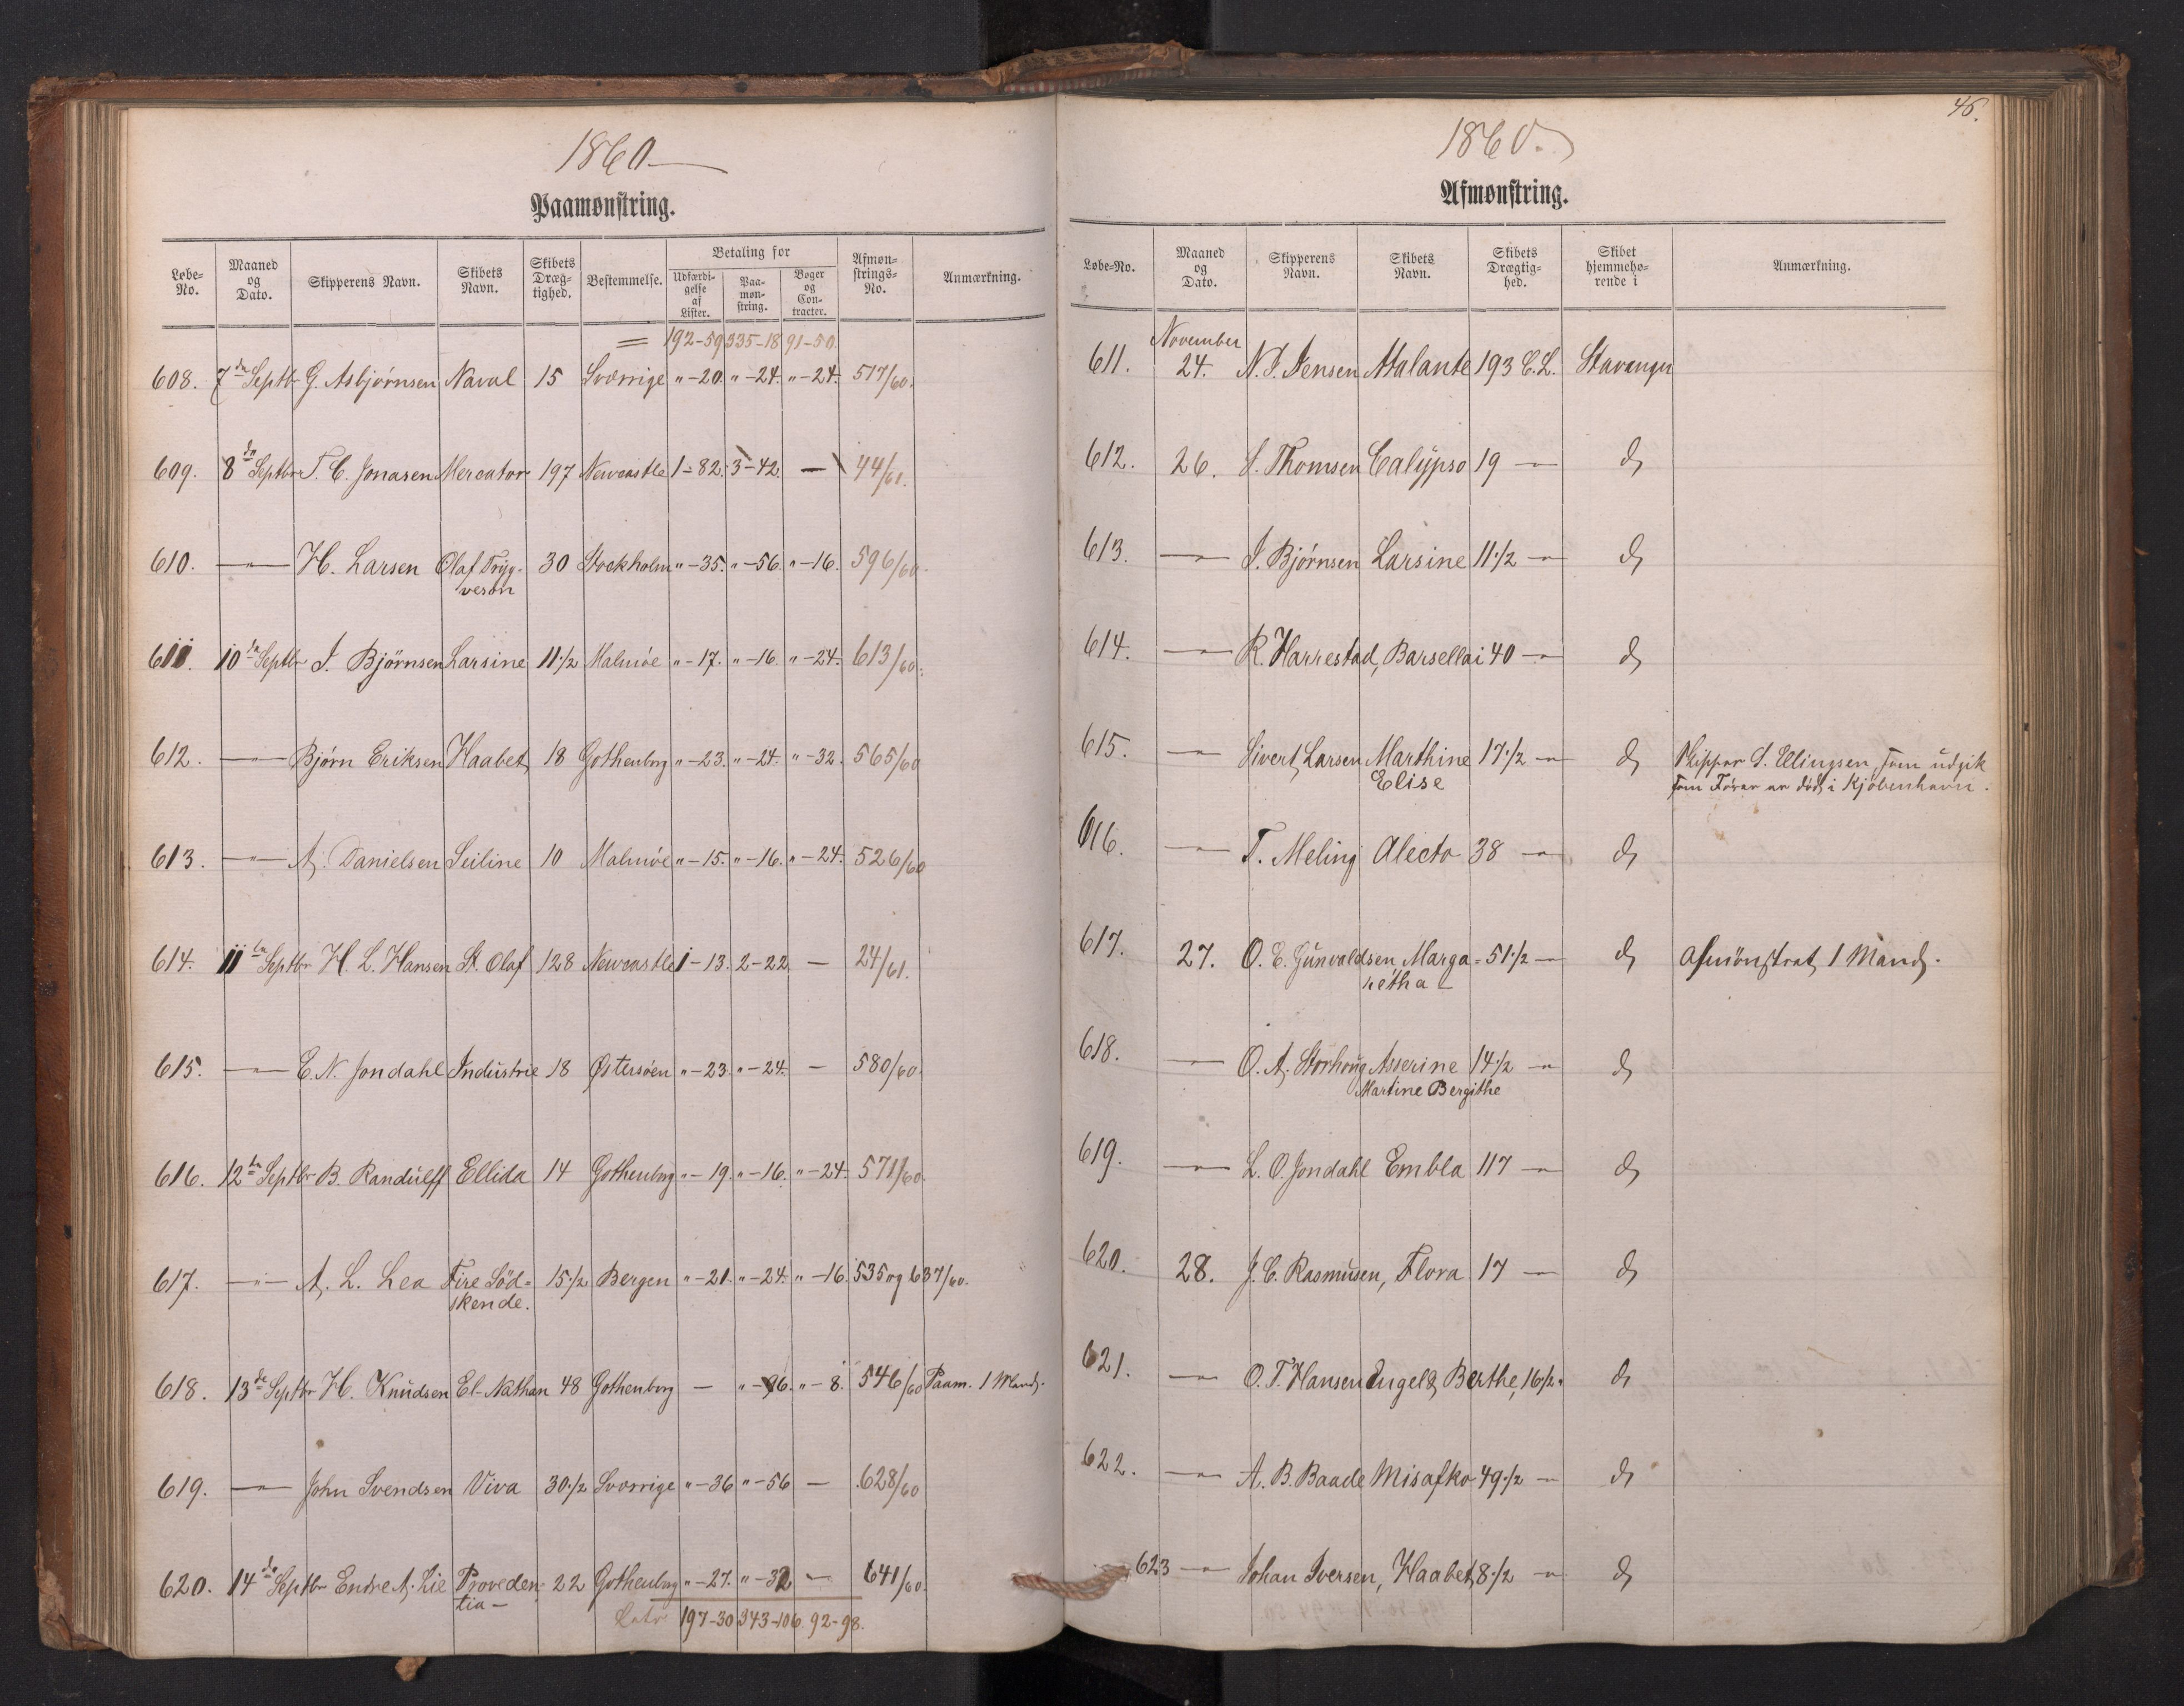 1860
Paamønstring.
Løbe-No. | Maaned og Dato. | Skipperens Navn. | Skibets Navn. | Skibets Dræg-tighed. | Bestemmelse. | Betaling for Udfærdi-gelse af Lister. | Paa-møn-string. | Bøger og Con-tracter. | Afmøn-strings-No. | Anmærkning.
192-59 335-18 91-50.
608. 7de Septbr G. Asbjørnsen Naval 15 Sverrige "-20. "-24. "-24. 517/60.
609. 8de Septbr T. C. Jonasen Mercator 197 Newcastle 1-82. 3-42. — 44/61.
610. —"— H. Larsen Olaf Tryg- 30 Stockholm "-35. "-56. "-16. 596/60.
veson
611. 10de Septbr J. Bjørnsen Larsine 11½ Malmöe "-17. "-16. "-24. 613/60.
612. —"— Bjørn Eriksen Haabet 18 Gothenborg "-23. "-24. "-32. 565/60
613. —"— A. Danielsen Seiline 10 Malmöe "-15. "-16. "-24. 526/60
614. 11te Septbr H. L. Hansen St. Olaf 128 Newcastle 1-13. 2-22 — 24/61.
615. —"— E. N. Jondahl Industrie 18 Østersøen "-23. "-24. — 580/60.
616. 12te Septbr B. Randulff Ellida 14 Gothenborg "-19. "-16. "-24. 571/60.
617. —"— A. L. Lea Fire Söd- 15½ Bergen "-21. "-24. "-16. 535 og 637/60.
skende.
618. 13de Septbr H. Knudsen El-Nathan 48 Gothenborg — "-96. "-8. 546/60 Paam. 1 Mand.
619. —"— John Svendsen Viva 30½ Sverrige "-36 "-56 — 628/60
620. 14de Septbr Endre A. Lie Proveden- 22 Gothenborg "-27. "-32 — 641/60.
tia—
Latr 197-30 343-106. 92-98.
46.
1860.
Afmønstring.
Løbe-No. | Maaned og Dato. | Skipperens Navn. | Skibets Navn. | Skibets Drægtig-hed. | Skibet hjemmehø-rende i | Anmærkning.
November
611. 24. N. J. Jensen Atalante 193 C.L. Stavanger
612. 26. S. Thomsen Calypso 19 —"— do
613. —"— J. Bjørnsen Larsine 11½ —"— do
614. —"— R. Harrestad, Barsellai 40 —"— do
615. —"— Sivert Larsen Marthine 17½ —"— do Skipper S. Ellingsen, som udgik
Elise som Fører er død i Kjøbenhavn.
616. —"— T. Meling Alecto 38 —"— do
617. 27. O. E. Gunvaldsen Marga- 51½ —"— do Afmønstret 1 Mand.
retha
618. —"— O. A. Storhoug Asserine 14½ —"— do
Martine Bergithe
619. —"— L. O. Jondahl Embla 117 —"— do
620. 28. J. C. Rasmusen, Flora 17 — do
621. —"— O. T. Hansen Engel & Berthe, 16½ " do
622. —"— A. B. Baade Misafko 49½ —"— do
623 —"— Johan Iversen, Haabet 8½ —"— do